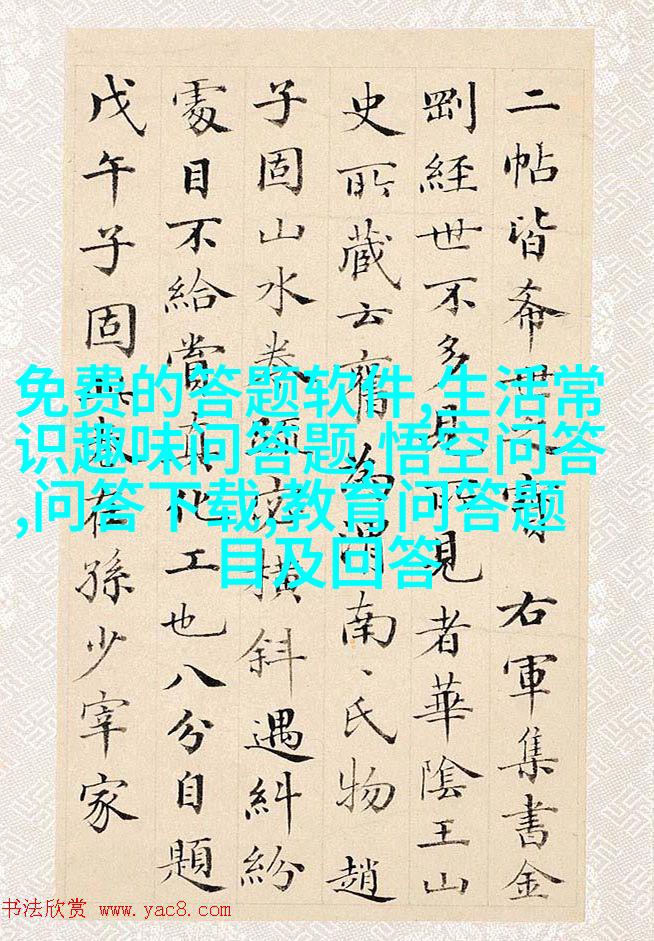 二帖皆希世之寶 右軍集書金
剛經世不多見所見者華陰王山
史所藏云舊為渭南、氏物趙
子固山水卷交横斜遇糾紛
處目不給賞真化工也八分自題
戊午子固在孫少宰家
免费的答题软件,生活常
识趣味问答题,悟空问答
,问答下载,教育问答题
目及回答
书法欣赏 www.yac8.com